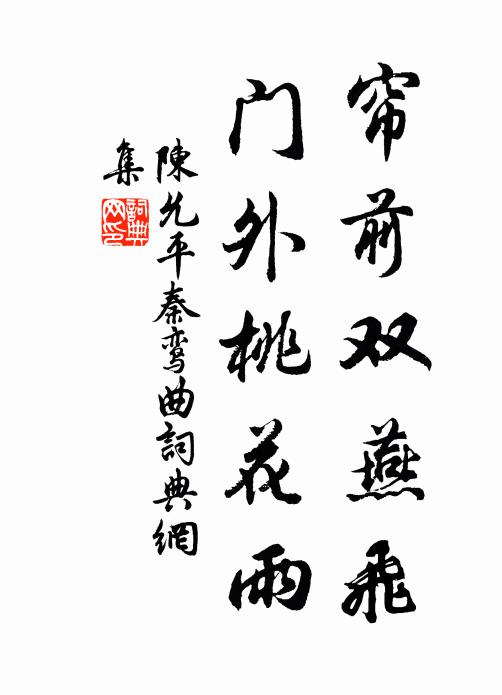 帘前双燕飛
门外桃花雨
陳允平秦鸾曲詞典網
集
詞典
网印